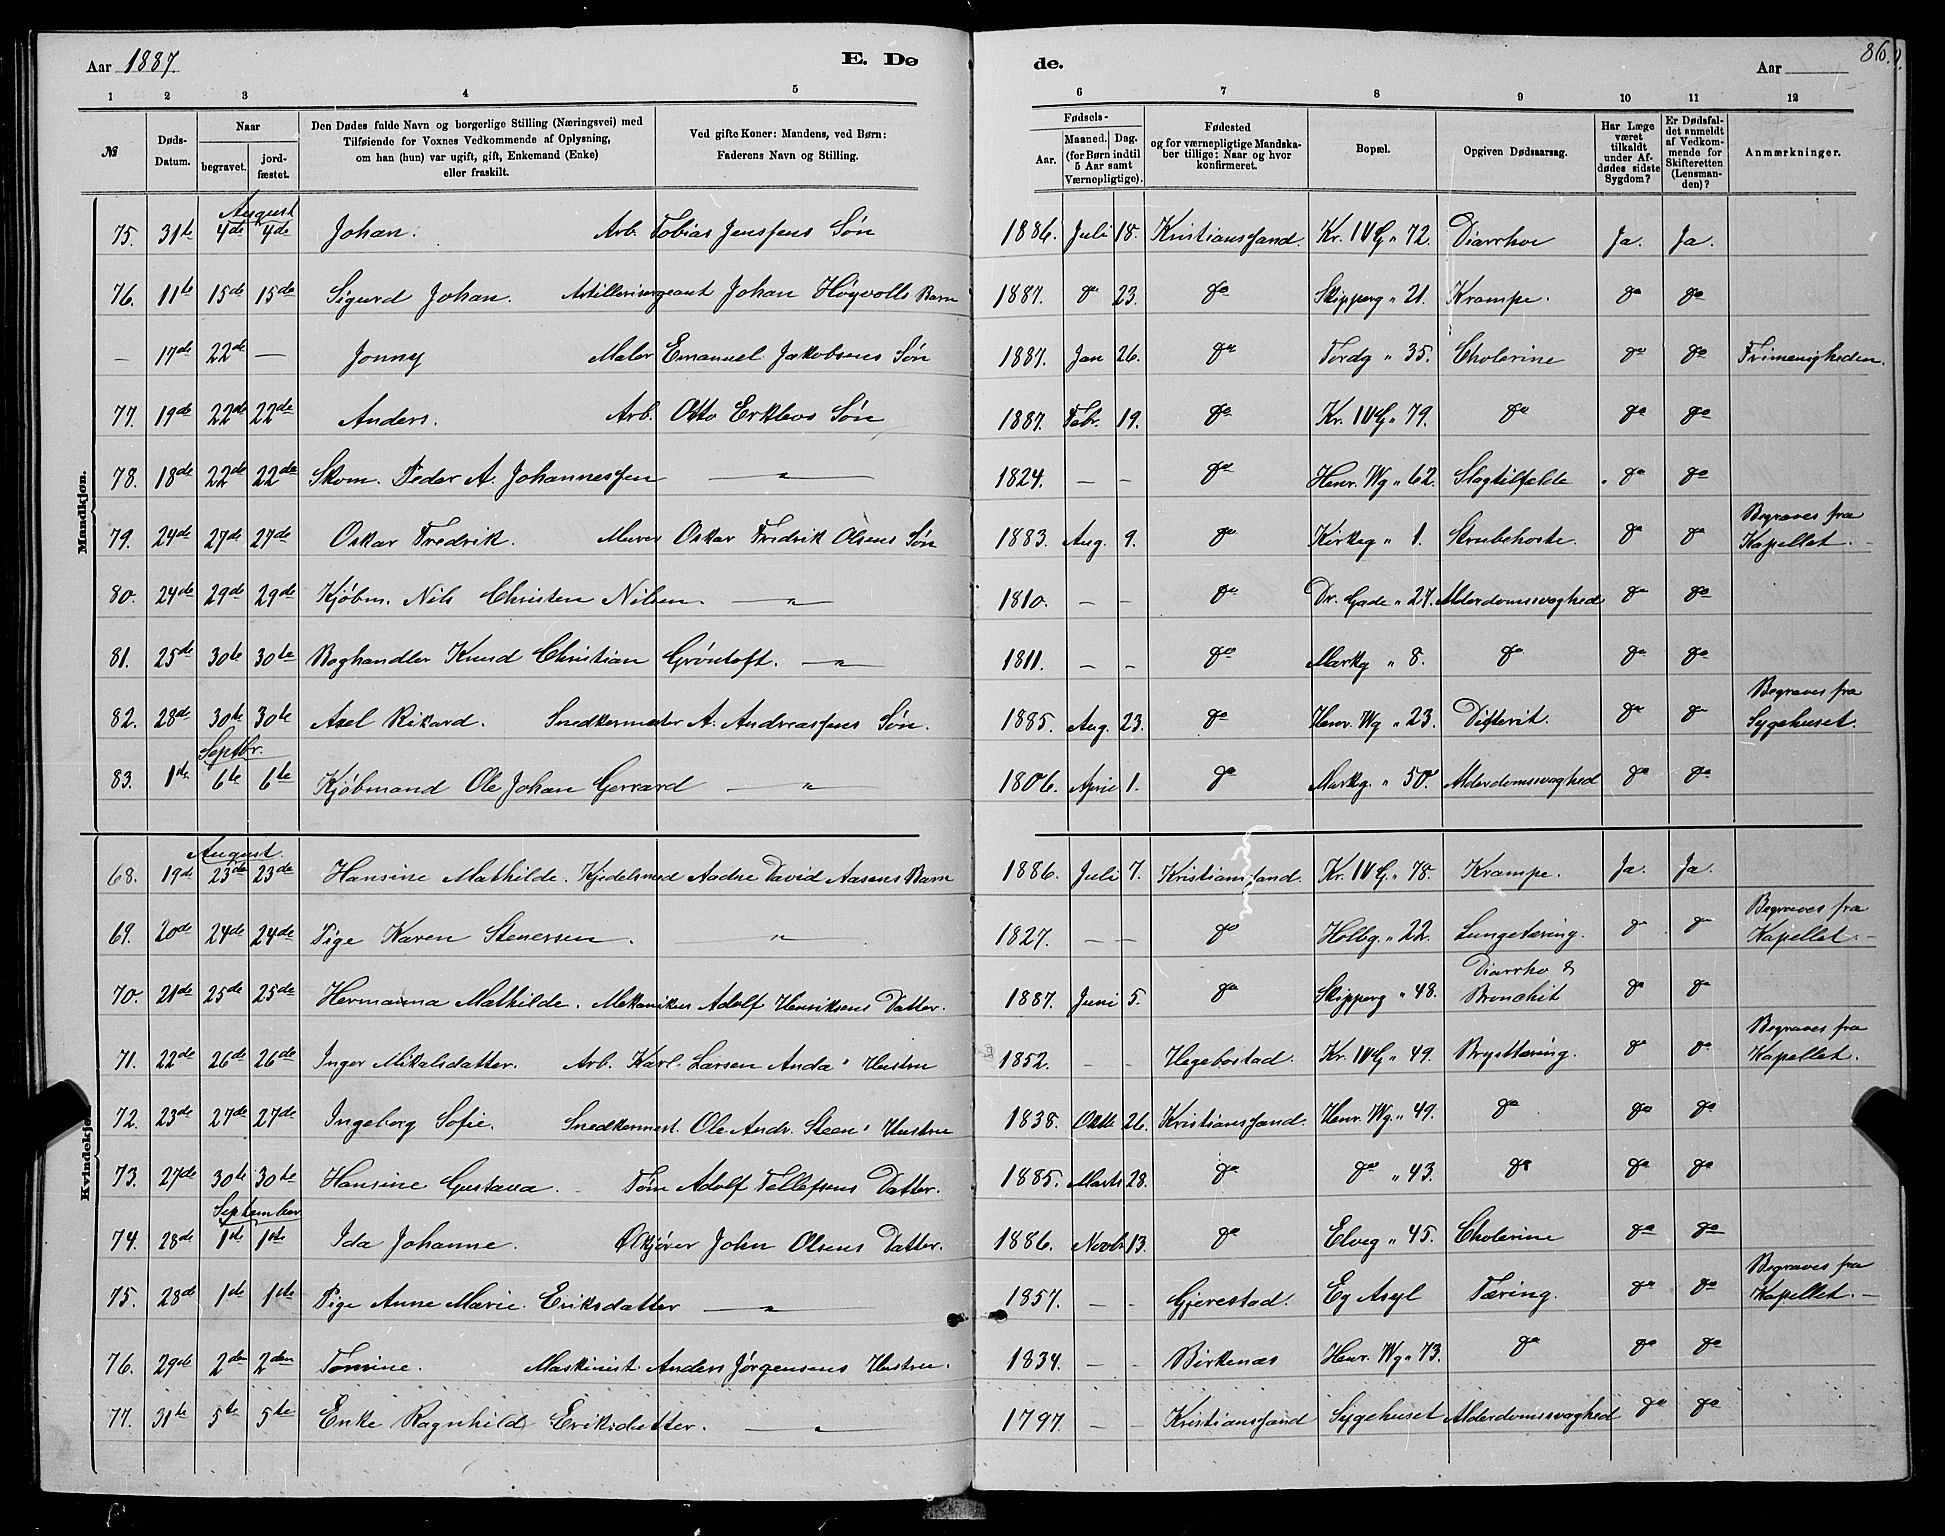 Aar 1887. E. Dø de. Aar 86.
1 2 3 4 5 6 7 8 9 10 11 12
№ Døds-Datum. Naar begravet. jordfæstet. Den Dødes fulde Navn og borgerlige Stilling (Næringsvei) med Tilføiende for Voxnes Vedkommende af Oplysning, om han (hun) var ugift, gift, Enkemand (Enke) eller fraskilt. Ved gifte Koner: Mandens, ved Børn: Faderens Navn og Stilling. Fødsels- Aar. Maaned. Dag. (for Børn indtil 5 Aar samt Værnepligtige). Fødested og for værnepligtige Mandskaber tillige: Naar og hvor konfirmeret. Bopæl. Opgiven Dødsaarsag. Har Læge været tilkaldt under Afdødes sidste Sygdom? Er Dødsfaldet anmeldt af Vedkommende for Skifteretten (Lensmanden)? Anmærkninger.
Mandkjøn.
August
75. 31te 4de 4de Johan. Arb. Tobias Jensens Søn 1886. Juli 18. Kristianssand. Kr. IV G " 72. Diarrhoe Ja. Ja.
76. 11te 15de 15de Sigurd Johan. Artillerisergeant Johan Høyvolls Barn 1887. do 23. do Skipperg " 21. Krampe. do do
— 17de 22de — Jonny Maler Emanuel Jakobsens Søn 1887. Jan 26. do Tordg " 35. Cholerine do do Frimenigheden.
77. 19de 22de 22de Anders. Arb. Otto Erklevs Søn 1887. Febr. 19. do Kr. IV G " 79. do do do
78. 18de 22de 22de Skom. Peder A. Johannessen — " — 1824. — — do Henr. Wg " 62. Slagtilfælde do do
79. 24de 27de 27de Oskar Fredrik. Murer Oskar Fredrik Olsens Søn 1883. Aug. 9. do Kirkeg " 1. Strubehoste. do do Begraves fra Kapellet. —
80. 24de 29de 29de Kjøbm. Nils Christen Nilsen. — " — 1810. — — do Dr. Gade " 27. Alderdomssvaghed do do
81. 25de 30te 30te Boghandler Knud Christian Grøntoft. — " — 1811. — — do Markg " 8. do do do
82. 28de 30te 30te Axel Rikard. Snedkermester A. Andreassens Søn. 1885. Aug. 23. do Henr. Wg " 23. Difterit. do do Begraves fra Sygehuset.
Septbr.
83. 1te 6te 6te Kjøbmand Ole Johan Gerrard — " — 1806. April 1. do Markg. " 50. Alderdomssvaghed do do
Kvindekjøn.
August.
68. 19de 23de 23de Hansine Mathilde. Kjedelsmed Aadne David Aasens Barn 1886. Juli 7. Kristianssand. Kr. IV G. " 78. Krampe. Ja. Ja.
69. 20de 24de 24de Pige Karen Stenersen. " 1827. — — do Holbg. " 22. Lungetæring. do do Begraves fra Kapellet. —
70. 21de 25de 25de Hermanna Mathilde. Mekaniker Adolf Henriksens Datter. 1887. Juni 5. do Skipperg " 48. Diarrho & Bronchit do do
71. 22de 26de 26de Inger Mikalsdatter. Arb. Karl Larsen Anda's Hustru 1852. — — Hegebostad. Kr. IV G " 49. Brysttæring. do do Begraves fra Kapellet.
72. 23de 27de 27de Ingeborg Sofie. Snedkermest. Ole Andr. Steen's Hustru 1838. Oktb 26. Kristianssand. Henr. Wg. " 49. do do do
73. 27de 30te 30te Hansine Gustava. Tøm Adolf Tellefsens Datter. 1885. Marts 28. do do " 43. do do do
September
74. 28de 1ste 1ste Ida Johanne. Ølkjører John Olsens Datter. 1886. Novbr 13. do Elveg " 45. Cholerine do do
75. 28de 1ste 1ste Pige Anne Marie Eriksdatter — " — 1857. — — Gjerestad. Eg Asyl Tæring. do do Begraves fra Kapellet. —
76. 29de 2den 2den Tomine. Maskinist Anders Jørgensens Hustru. 1834. — — Birkenæs Henr. Wg " 73. do do do
77. 31te 5te 5te Enke Ragnhild Eriksdatter. — " — 1797. — — Kristianssand Sygehuset Alderdomssvaghed do do